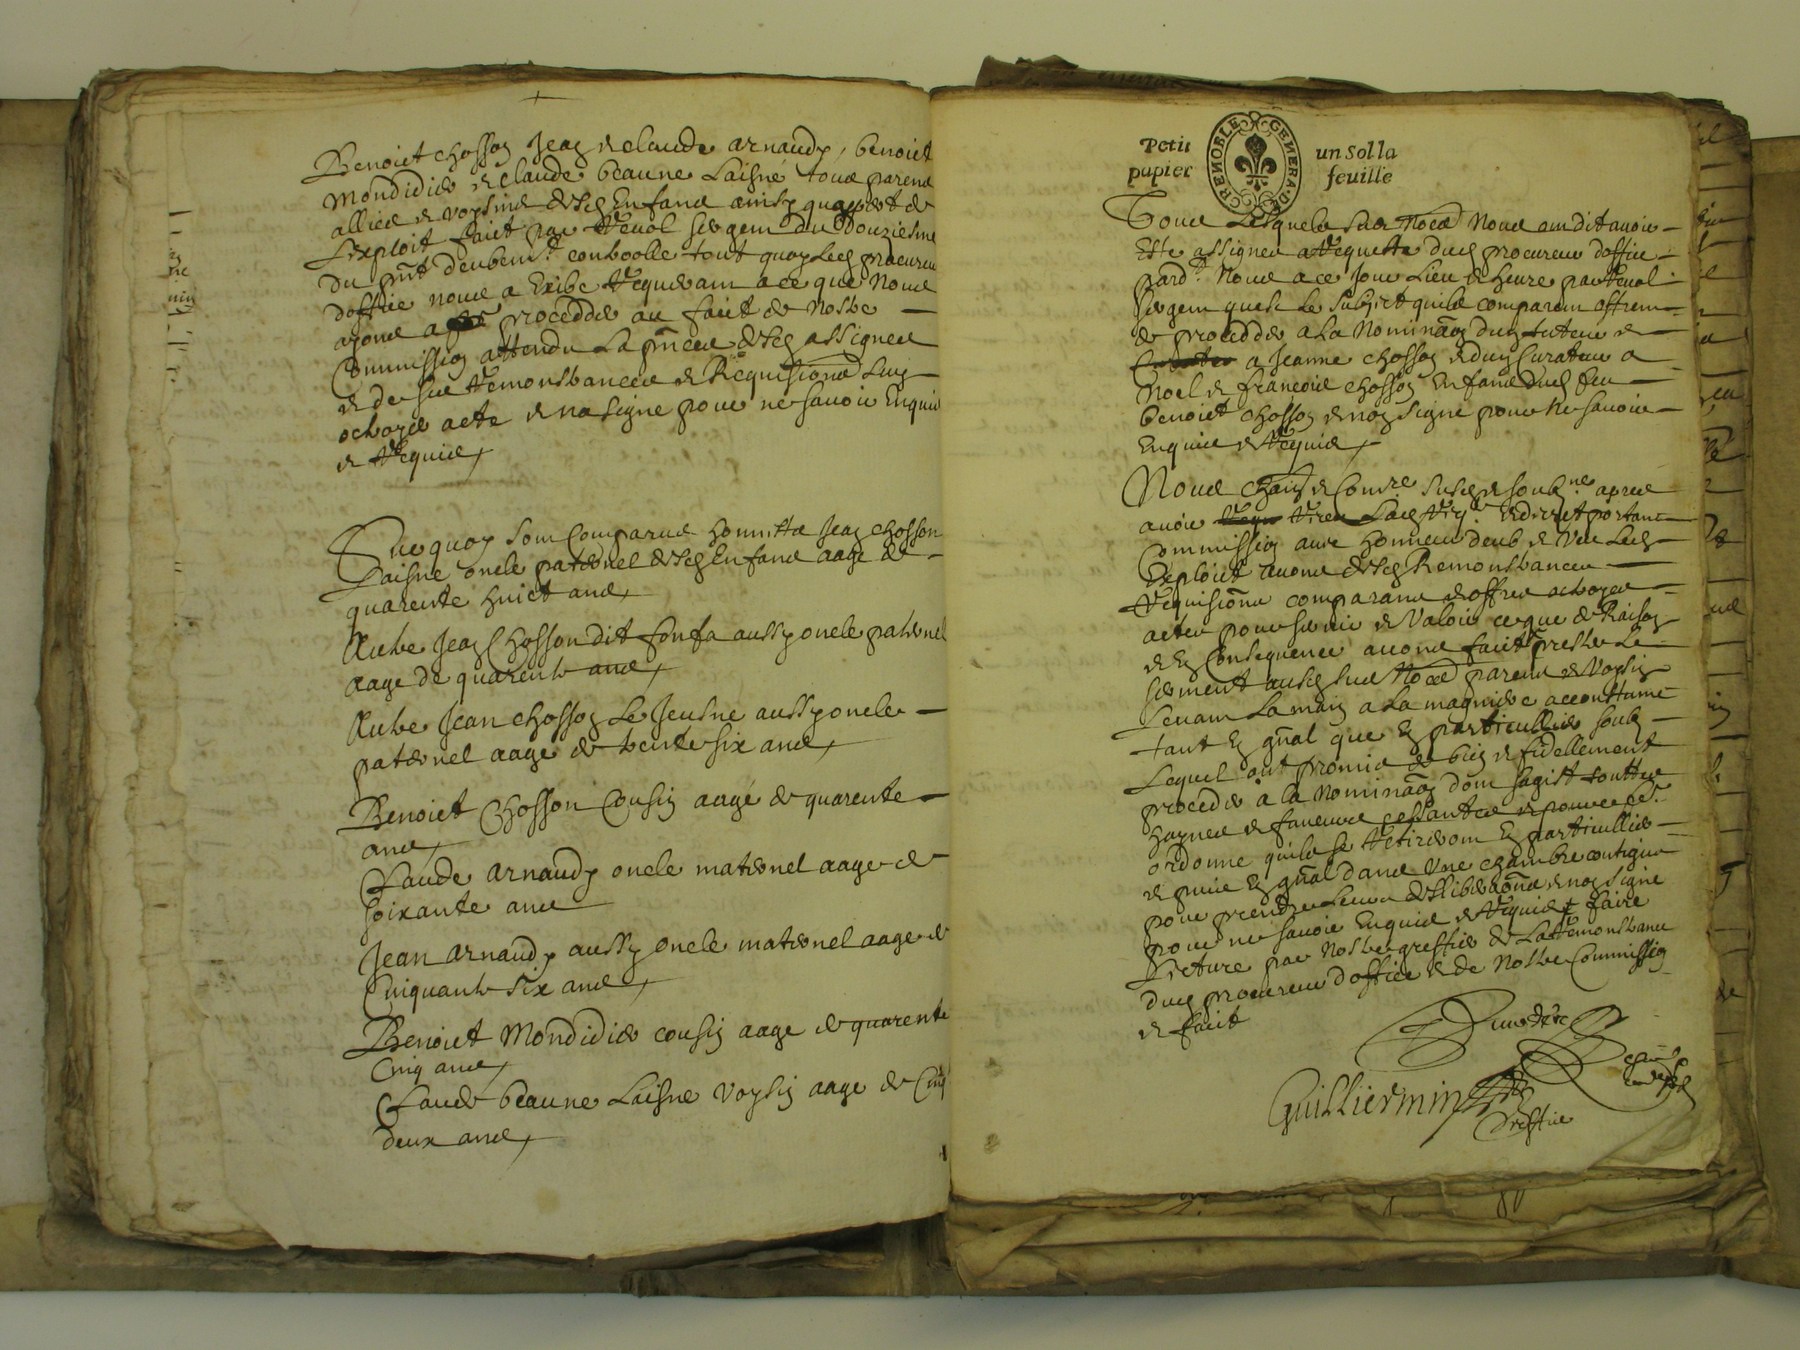 Benoict chosson Jean & claude arnaud, benoict
Mondidier & claude beaune Laisne tous parens
allies & voysins desdits Enfans ainsy quappert de
Lexploit faict par Revol sergent du Douziesme
du pnt deubemt controolle tout quoy Led procureur
doffice nous a Exibe Requerant a ce que Nous
ayons a proceddé au faict de Nostre
Commission attendu La pnce desd assignes
& de sue Remonstrances & Requisitions Luy
octroyer acte & na signe pour ne savoir Enquis
& Requis
Sur quoy sont Comparus honneste Jean chosson
Laisne oncle paternel desd Enfans aage de
quarente huict ans
Autre Jean Chosson dit fonfa aussy oncle paternel
aage de quarente ans
Autre Jean chosson Le Jeusne aussy oncle
paternel aage de trente six ans
Benoict Chosson Cousin aagé de quarente
ans
Claude arnaud oncle maternel aage de
soixante ans
Jean arnaud aussy oncle maternel aage de
Cinquante six ans
Benoict Mondidier cousin aage de quarente
Cinq ans
Claude beaune Laisne voysin aage de Cinq
deux ans
Petit papier
GRENOBLE GENERA. DE
un sol la feuille
Tous Lesquels sus Nommes Nous ont dit avoir
Este assignes a Requeste dud procureur doffice
pardt Nous a ce Jour Lieu & heure par Revol
sergent quest Le subject quils comparent offrent
de proceddé a La Nominaon dun tuteur &
a Jeanne chosson & dun Curateur a
Noel & francois chosson Enfans dud feu
benoict chosson & non signe pour Ne savoir
Enquis & Requis
Nous & Comre susd & soubsne apres
avoir Lad & decret portant
Commission avec honneur deub & Veu Led
Exploict avons desd Remonstrances
Requisitions comparans & offres octroyes
actes pour servir & valoir ce que de Raison
& En Consequence avons faict prester Le
serment ausd sus Nommes parens & Voysin
Levant La main a La maniere accouttume
tant En gnal que En particullier soubz
Lequel ont promis de bien & fidellement
proceder a la Nominaon dont sagist toutte
haynes & faveurs cessantes &
ordonne quils se Retireront En particullier
& puis En gnal dans Une chambre contigue
pour prendre Leurs desliberaons & non signe
pour ne savoir Enquis & Requis faire
Lecture par Nostre greffier de La Remonstrance
dud procureur doffice & de Nostre Commission
& faict
Guilliermin
Greffier